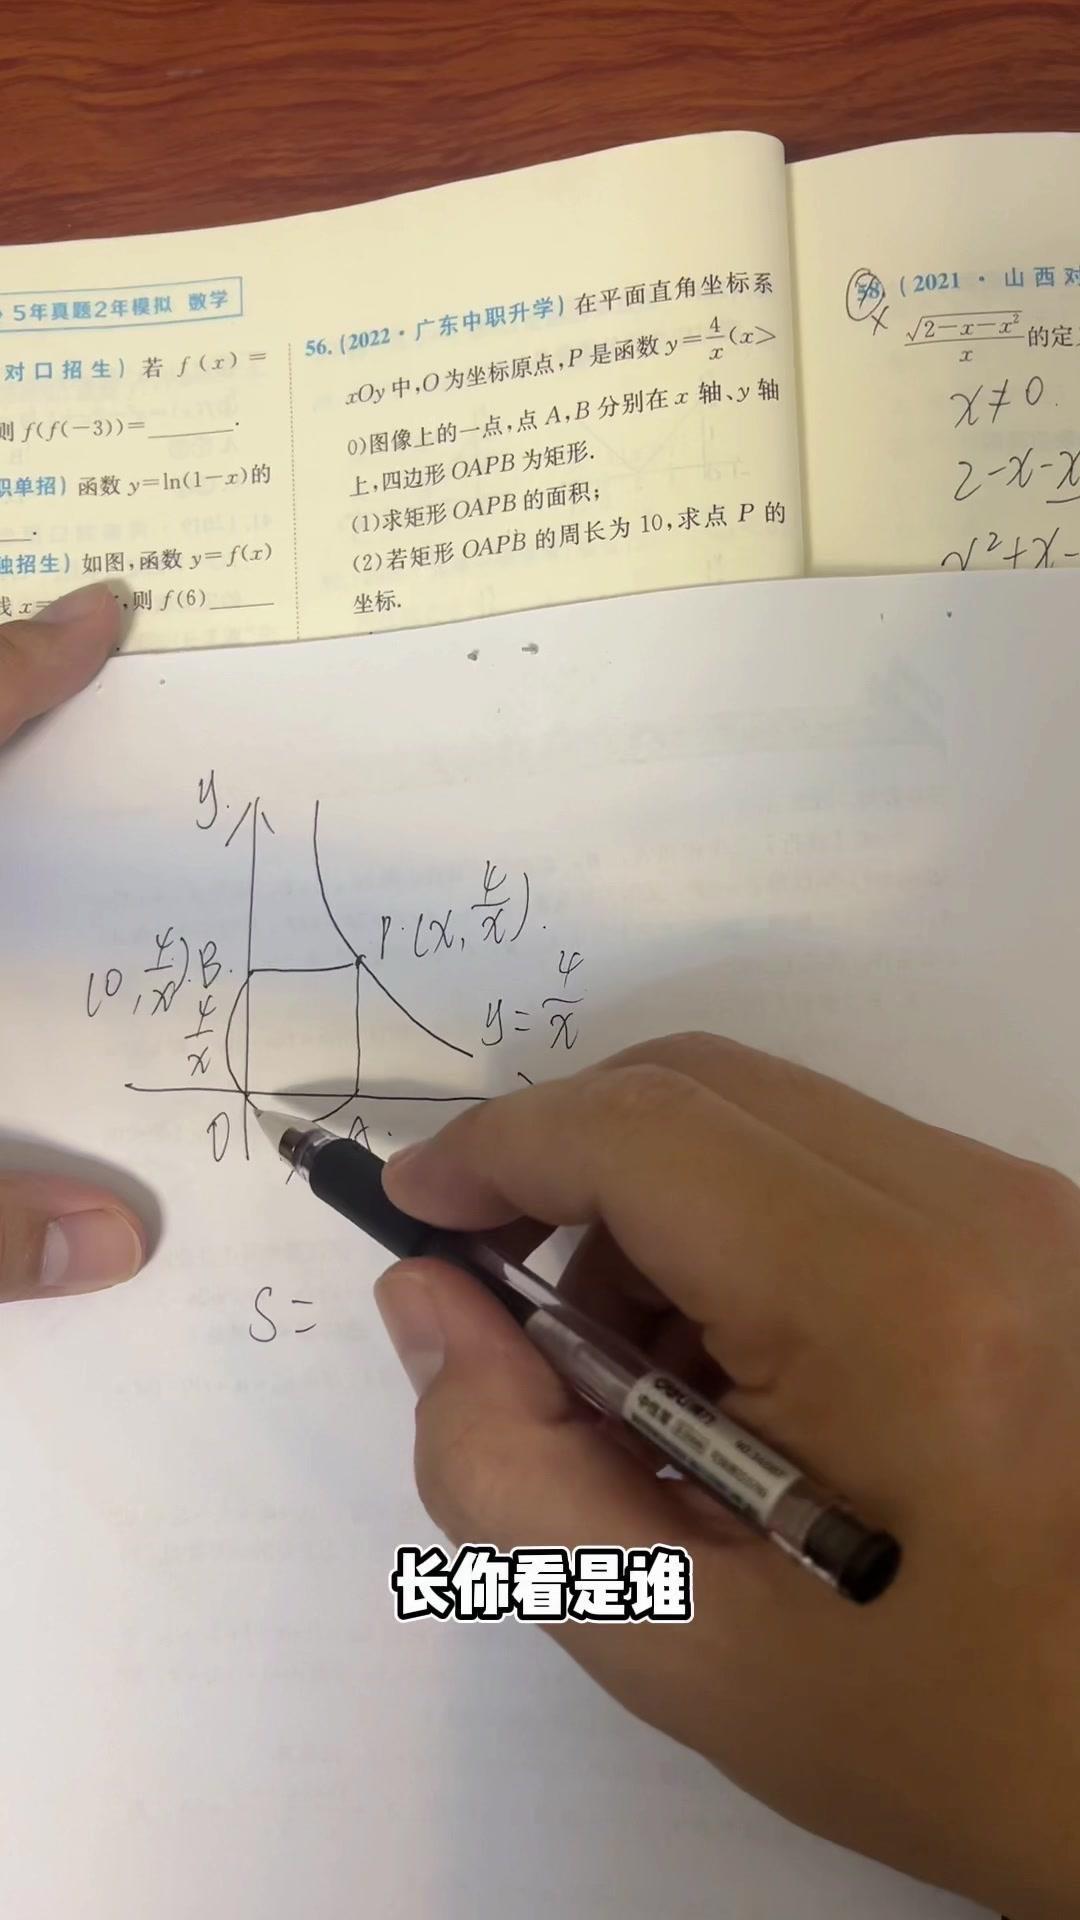 5年真题2年模拟 数学
对口招生) 若 f(x)=
则 f(f(-3))=______.
职单招) 函数 y=ln(1-x)的
独招生) 如图,函数 y=f(x)
线 x=
,则 f(6)_____
56.(2022·广东中职升学) 在平面直角坐标系
xOy 中,O 为坐标原点,P 是函数 y=4/x(x>
0)图像上的一点,点 A,B 分别在 x 轴、y 轴
上,四边形 OAPB 为矩形.
(1)求矩形 OAPB 的面积;
(2)若矩形 OAPB 的周长为 10,求点 P 的
坐标.
58.(2021·山西对
√(2-x-x²)/x 的定
x≠0.
2-x-x
x²+x-
y
P(x, 4/x).
(0, 4/x) B.
y=4/x
4/x
O
A.
S=
长你看是谁